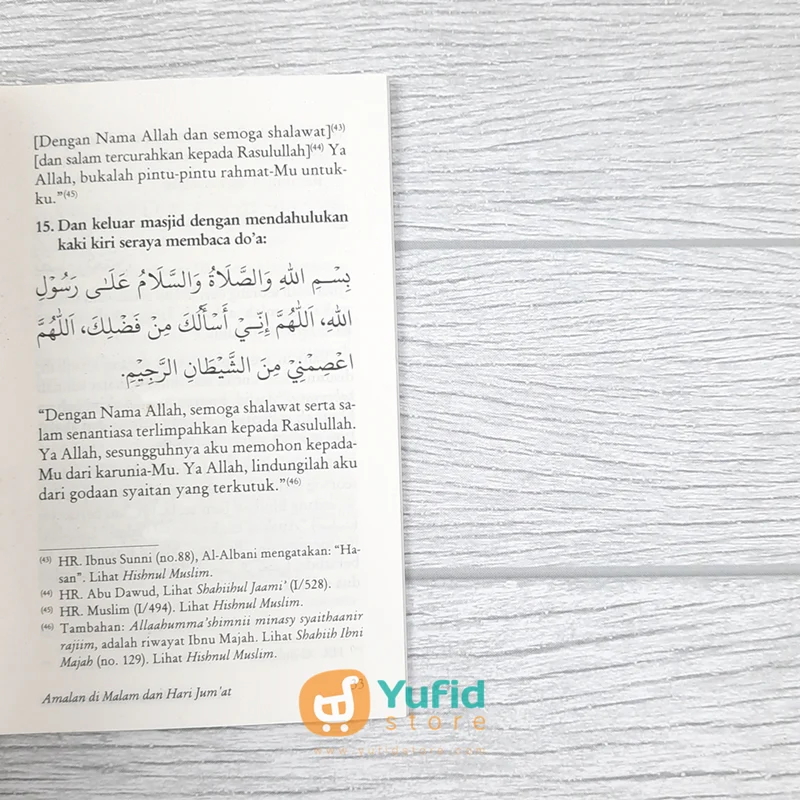 [Dengan Nama Allah dan semoga shalawat]⁽⁴³⁾
[dan salam tercurahkan kepada Rasulullah]⁽⁴⁴⁾ Ya
Allah, bukalah pintu-pintu rahmat-Mu untuk-
ku.”⁽⁴⁵⁾
15. Dan keluar masjid dengan mendahulukan
kaki kiri seraya membaca do’a:
بِسْـمِ اللهِ وَالصَّلَاةُ وَالسَّلَامُ عَلَـٰى رَسُوْلِ
اللهِ، اَللّٰهُمَّ إِنِّـيْ أَسْأَلُكَ مِنْ فَضْلِكَ، اَللّٰهُمَّ
اعْصِمْنِيْ مِنَ الشَّيْطَانِ الرَّجِيْمِ.
“Dengan Nama Allah, semoga shalawat serta sa-
lam senantiasa terlimpahkan kepada Rasulullah.
Ya Allah, sesungguhnya aku memohon kepada-
Mu dari karunia-Mu. Ya Allah, lindungilah aku
dari godaan syaitan yang terkutuk.”⁽⁴⁶⁾
⁽⁴³⁾ HR. Ibnus Sunni (no.88), Al-Albani mengatakan: “Ha-
san”. Lihat Hishnul Muslim.
⁽⁴⁴⁾ HR. Abu Dawud, Lihat Shahiihul Jaami’ (I/528).
⁽⁴⁵⁾ HR. Muslim (I/494). Lihat Hishnul Muslim.
⁽⁴⁶⁾ Tambahan: Allaahumma’shimnii minasy syaithaanir
rajiim, adalah riwayat Ibnu Majah. Lihat Shahiih Ibni
Majah (no. 129). Lihat Hishnul Muslim.
Amalan di Malam dan Hari Jum’at
Yufid
store
www.yufidstore.com